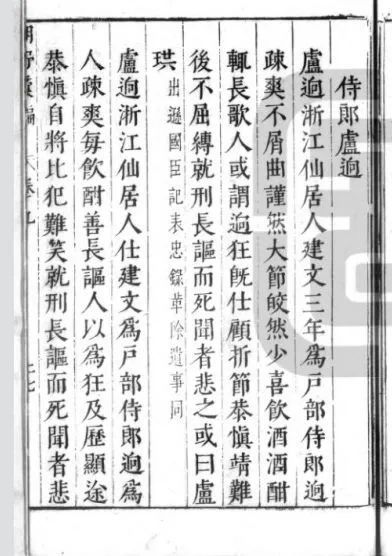 侍郎盧迥
盧迥浙江仙居人建文三年為戶部侍郎迥
疎爽不屑曲謹然大節皎然少喜飲酒酒酣
輒長歌人或謂迥狂旣仕顧折節恭慎靖難
後不屈縛就刑長謳而死聞者悲之或曰盧
珙出遜國臣記表忠錄革除遺事同
盧迥浙江仙居人仕建文為戶部侍郎迥為
人疎爽每飲酣善長謳人以為狂及歷顯途
恭慎自將比犯難笑就刑長謳而死聞者悲
朝野彙編 卷九